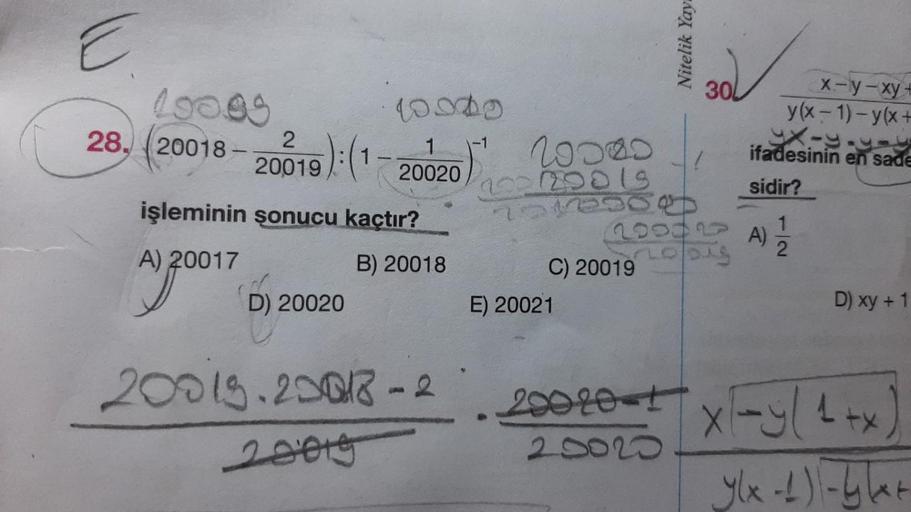 E
Nitelik Yay
28. (20018 - 2/20019) : (1 - 1/20020)^-1
20020
20019
işleminin sonucu kaçtır?
A) 20017 B) 20018 C) 20019
D) 20020 E) 20021
20019.20018-2 / 20019 . 20020-1 / 20020
30.
x-y-xy+
y(x-1)-y(x+
ifadesinin en sade
sidir?
A) 1/2
D) xy + 1
x-y(1+x)
y(x-1)-y(x+